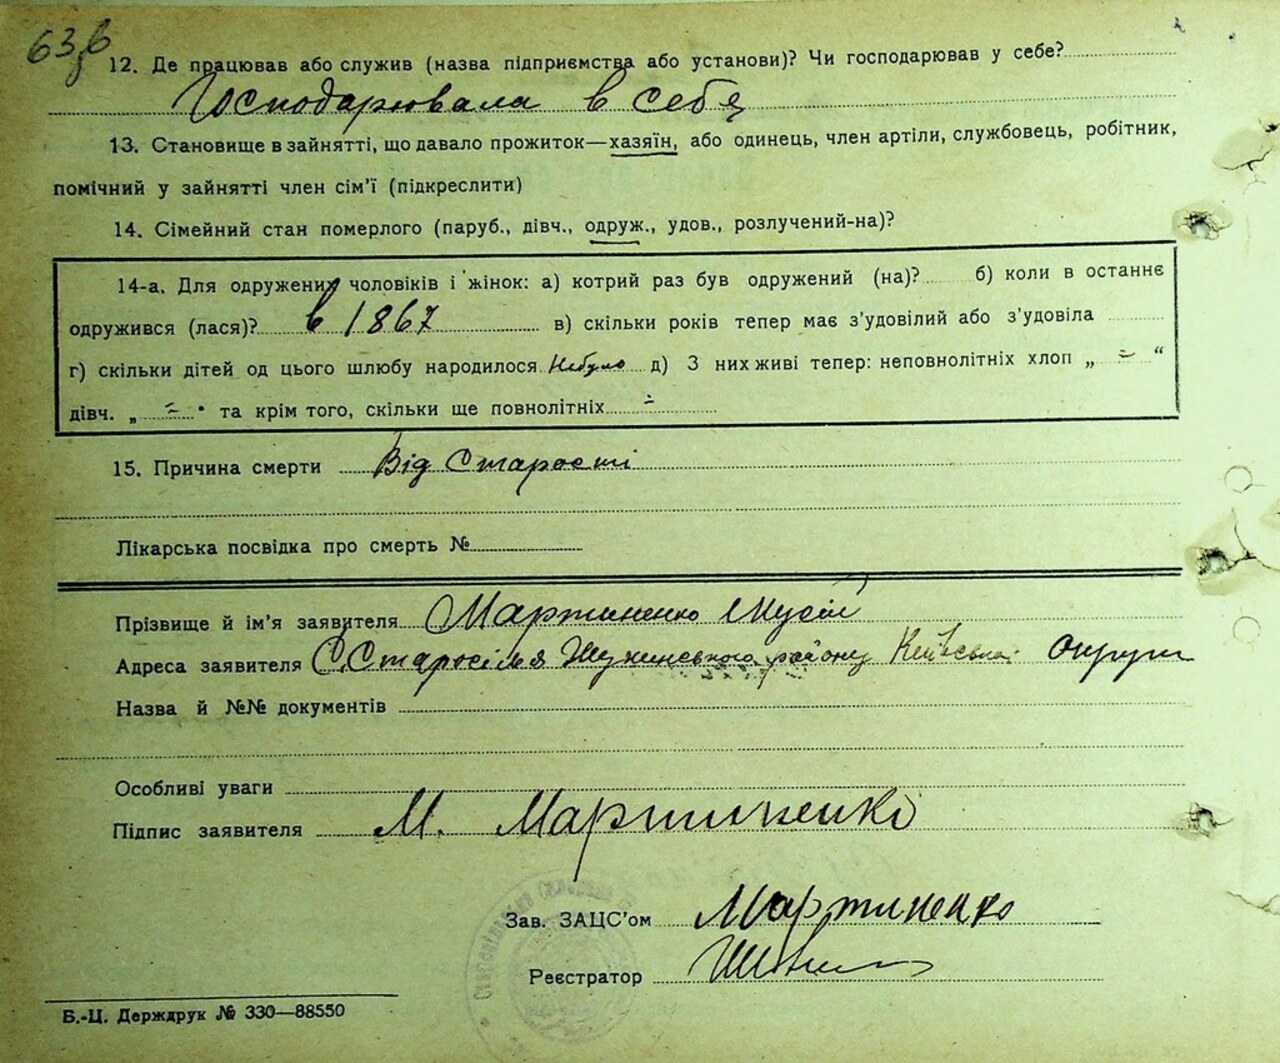 63б
12. Де працював або служив (назва підприємства або установи)? Чи господарював у себе?
Господарювала в себе
13. Становище в зайнятті, що давало прожиток—хазяїн, або одинець, член артіли, службовець, робітник,
помічний у зайнятті член сім'ї (підкреслити)
14. Сімейний стан померлого (паруб., дівч., одруж., удов., розлучений-на)?
14-а. Для одружених чоловіків і жінок: а) котрий раз був одружений (на)? б) коли в останнє
одружився (лася)? в 1867 в) скільки років тепер має з'удовілий або з'удовіла
г) скільки дітей од цього шлюбу народилося Небуло д) З них живі тепер: неповнолітніх хлоп „ — “
дівч. „ — “ та крім того, скільки ще повнолітніх —
15. Причина смерти Від Старости
Лікарська посвідка про смерть №
Прізвище й ім'я заявителя Мартиненко Мусій
Адреса заявителя С. Старосілля району Київської Округи
Назва й №№ документів
Особливі уваги
Підпис заявителя М. Мартиненко
Зав. ЗАЦС'ом Мартиненко
Реєстратор
Б.-Ц. Держдрук № 330—88550